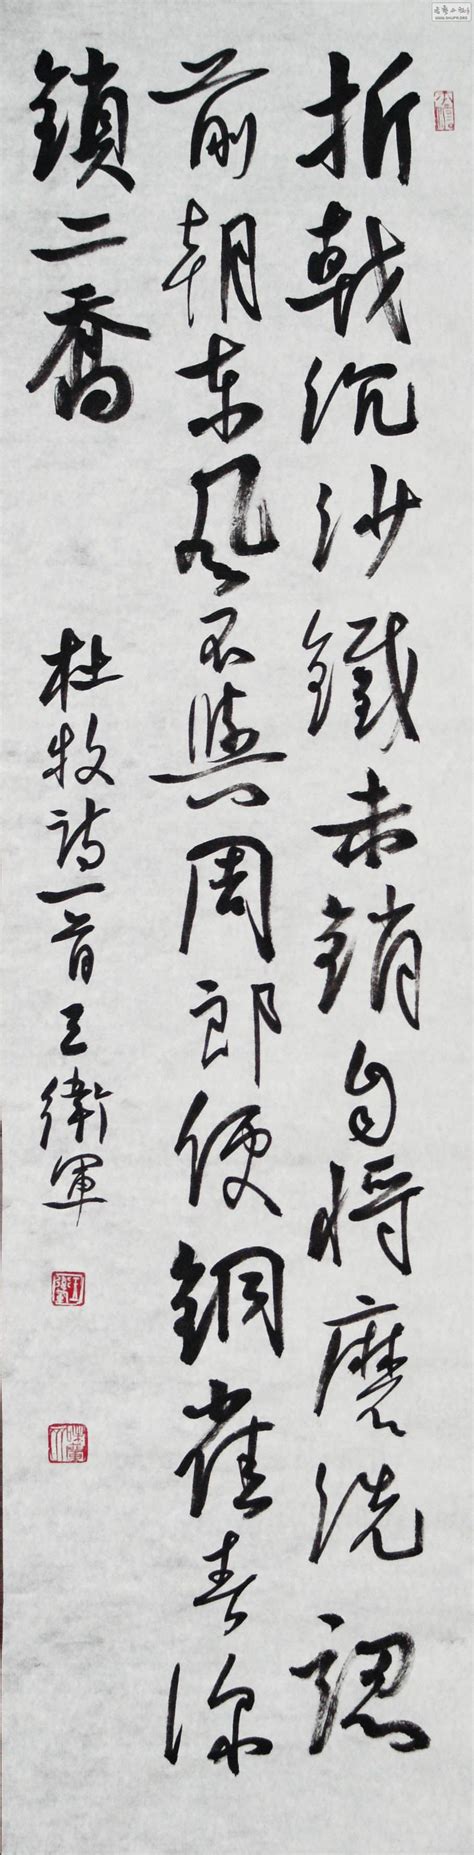 折戟沉沙鐵未銷自將磨洗認
前朝東風不與周郎便銅雀春深
鎖二喬
杜牧詩一首王衛軍